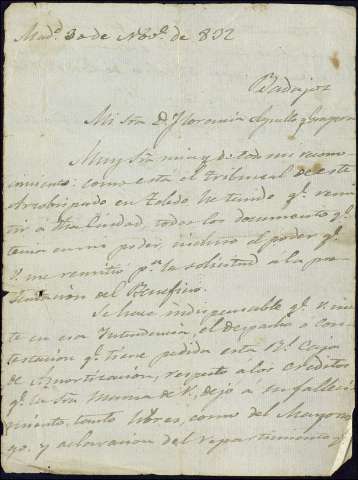 Mad.d 30 de Nov.e de 832
Badajoz
Mi Sra D.a Florencia
Muy Sra mia y de todo mi recono
cimiento: como esta el tribunal de este
Arzobispado en Toledo he tenido q.e remi
tir a dha Ciudad, todos los documentos q.e
tenia en mi poder, incluso el poder q.e
V. me remitió p.a la solicitud a la pre
sentacion del Beneficio.
Se hace indispensable q.e V. inste
en esa Intendencia, el despacho o con
testacion q.e tiene pedida esta R.l Caja
de Amortizacion, respecto a los creditos
q.e la Sra Mamá de V. dejó a su falleci
miento, tanto libres, como del Mayoraz
go, y aclaracion del repartimiento q.e